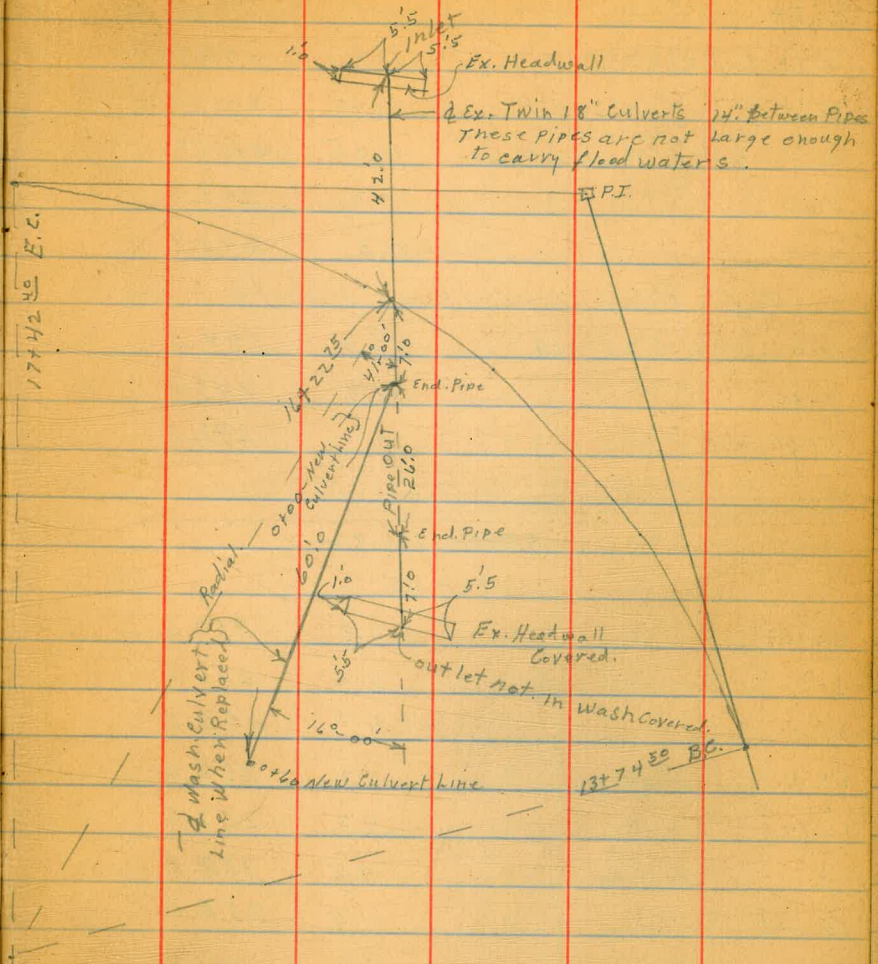 5.'5
Inlet
1.'0
5.'5
Ex. Headwall
℄ Ex. Twin 18" Culverts 14" Between Pipes
These pipes are not Large enough
to carry flood waters.
42.'0
P.I.
17+42 40 E.C.
16+22.75
41°-00'
7.'0
End. Pipe
0+00-New
Culvert Line
Pipe Out
26.'0
End. Pipe
Radial
60.'0
1.'0
7.'0
5.'5
Ex. Headwall
Covered.
5.'5
outlet not in Wash Covered.
℄ Wash. Culvert
Line When Replaced
16°-00'
13+74 50 B.C.
0+60 New Culvert Line